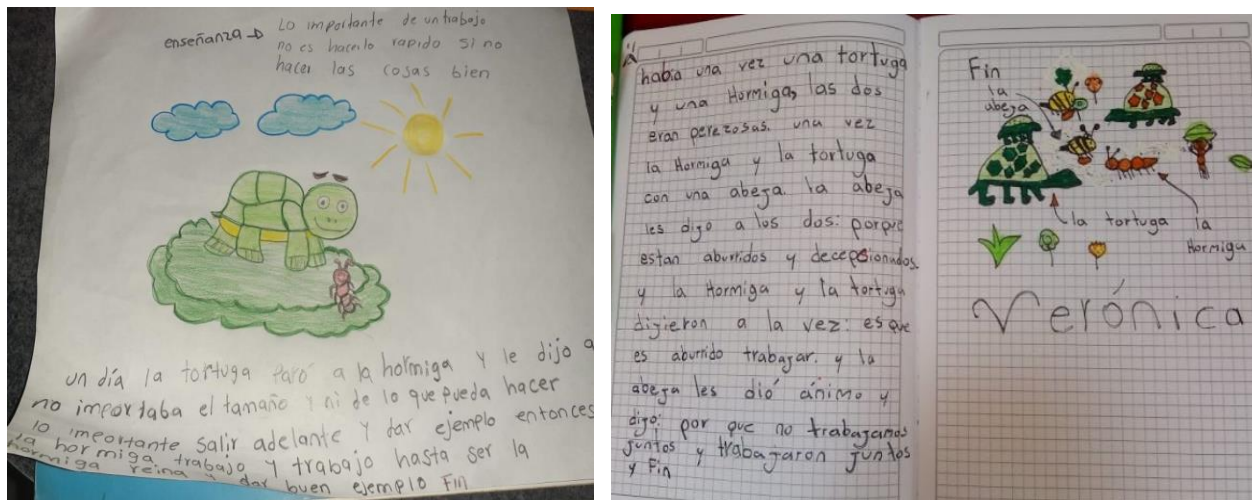 enseñanza → Lo importante de un trabajo
no es hacerlo rapido si no
hacer las cosas bien
un día la tortuga paró a la holmiga y le dijo a
no importaba el tamaño y ni de lo que pueda hacer
lo importante salir adelante y dar ejemplo entonces
la hormiga trabajo y trabajo hasta ser la
hormiga reina y dar buen ejemplo Fin
había una vez una tortuga
y una Hormiga, las dos
eran perezosas. una vez
la Hormiga y la tortuga
con una abeja. la abeja
les dijo a los dos: porque
estan aburridos y decepsionados.
y la Hormiga y la tortuga
digieron a la vez: es que
es aburrido trabajar. y la
abeja les dió ánimo y
dijo: por que no trabajamos
juntos y trabajaron juntos
y Fin
Fin
la
abeja
la tortuga
la
Hormiga
Verónica